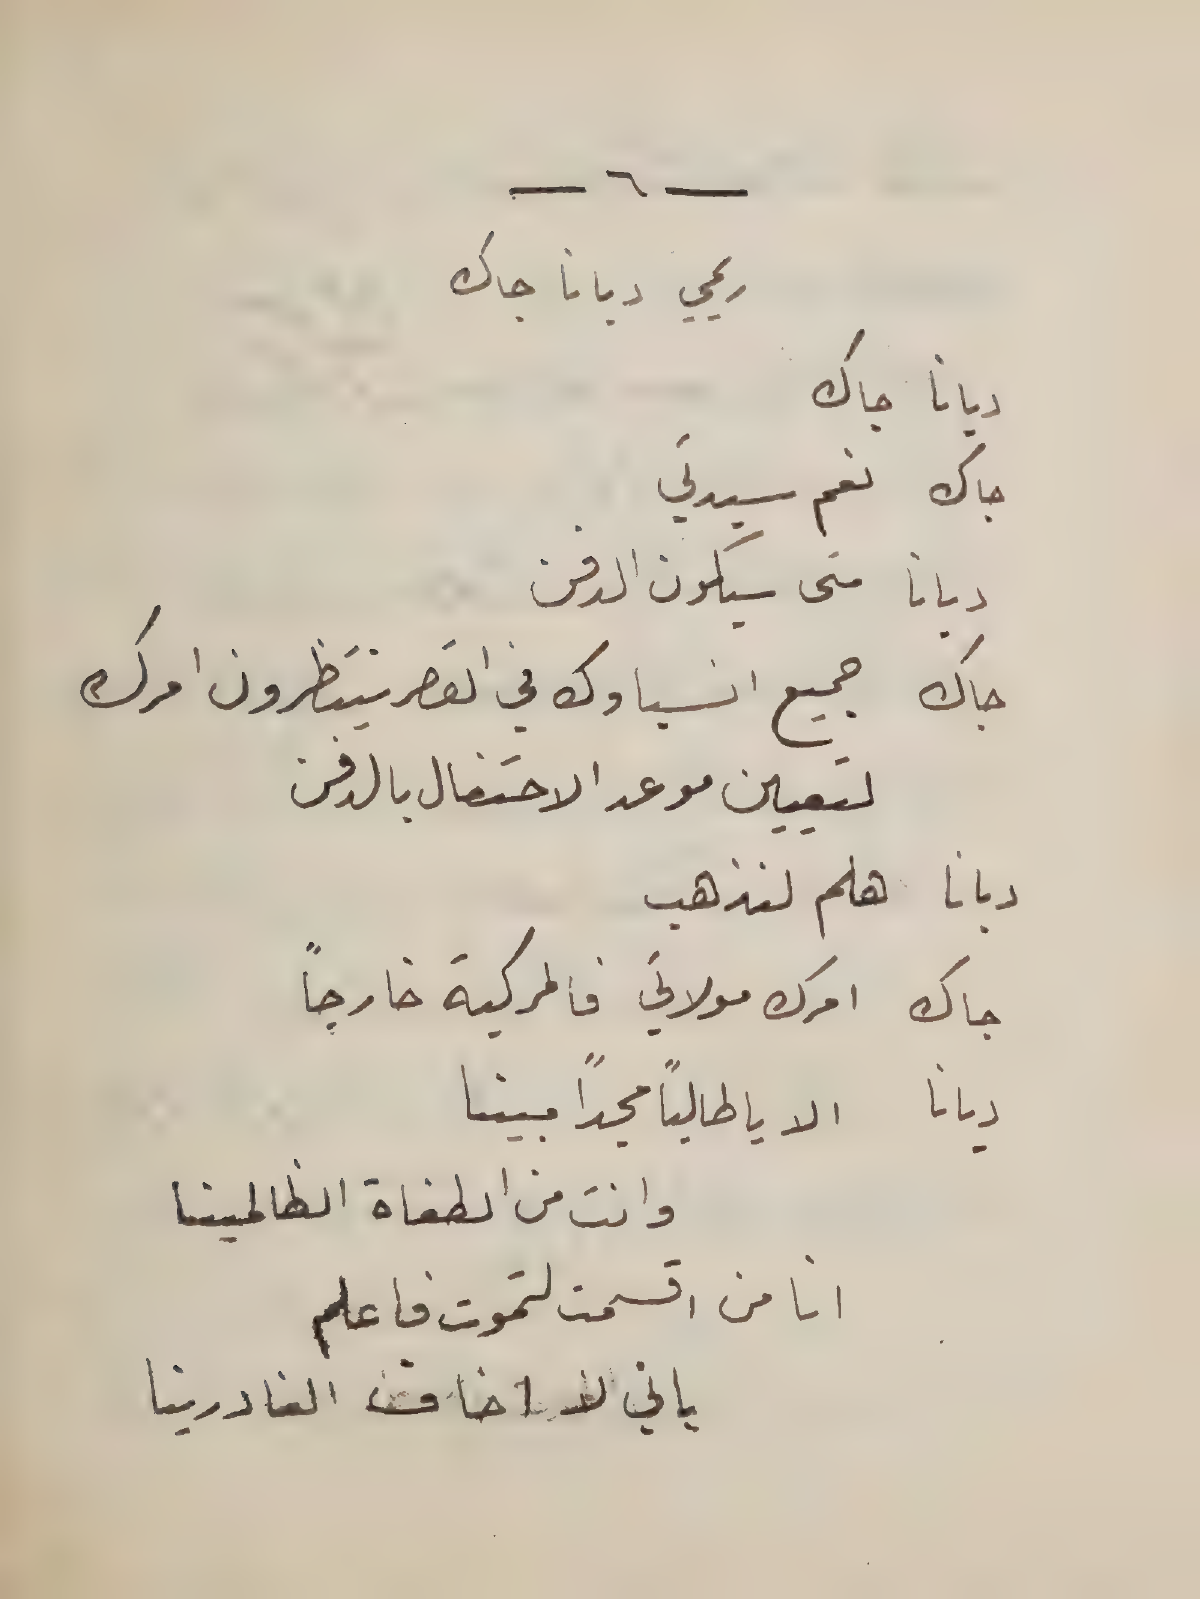 — ٦ —
ريمي ديانا جاك
ديانا جاك
جاك نعم سيدتي
ديانا متى سيكون الدفن
جاك جميع انسباوك في القصر ينتظرون امرك
لتعيين موعد الاحتفال بالدفن
ديانا هلم لنذهب
جاك امرك مولاتي فالمركبة خارجاً
ديانا الا يا طالباً مجداً مبينا
وانت من الطغاة الظالمينا
انا من اقسمت لتموت فاعلم
باني لا اخاف الغادرينا